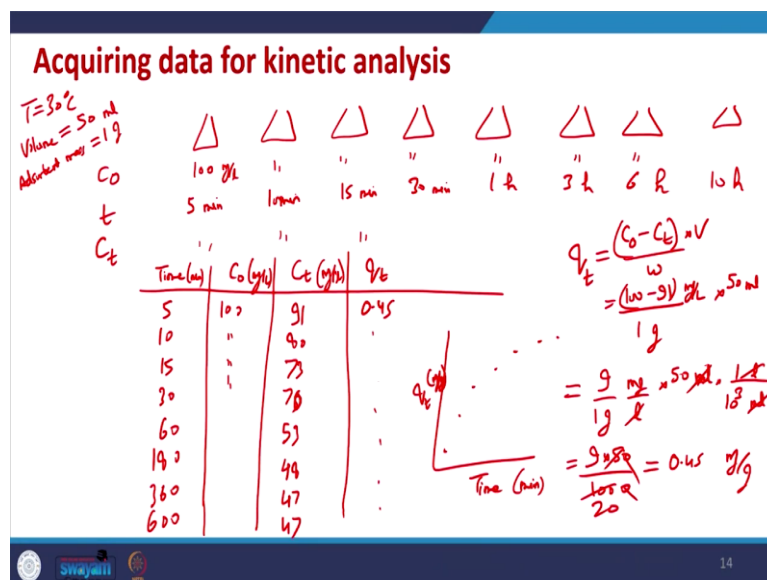 Acquiring data for kinetic analysis
T=30°C
Volume = 50 ml
Adsorbent mass = 1 g
C₀ 100 mg/L " " " " " "
t 5 min 10 min 15 min 30 min 1 h 3 h 6 h 10 h
Cₜ " " "
Time (min) | C₀ (mg/L) | Cₜ (mg/L) | qₜ
5 100 91 0.45
10 " 80 .
15 " 73
30 " 70
60 53
180 48
360 47
600 47
qₜ = (C₀ - Cₜ) × V / w
= (100 - 91) mg/L × 50 ml / 1 g
= 9/1g mg/L × 50 ml × 1 L/10³ ml
= 9 × 50 / 1000 20 = 0.45 mg/g
qₜ (mg/g)
Time (min)
swayam
14